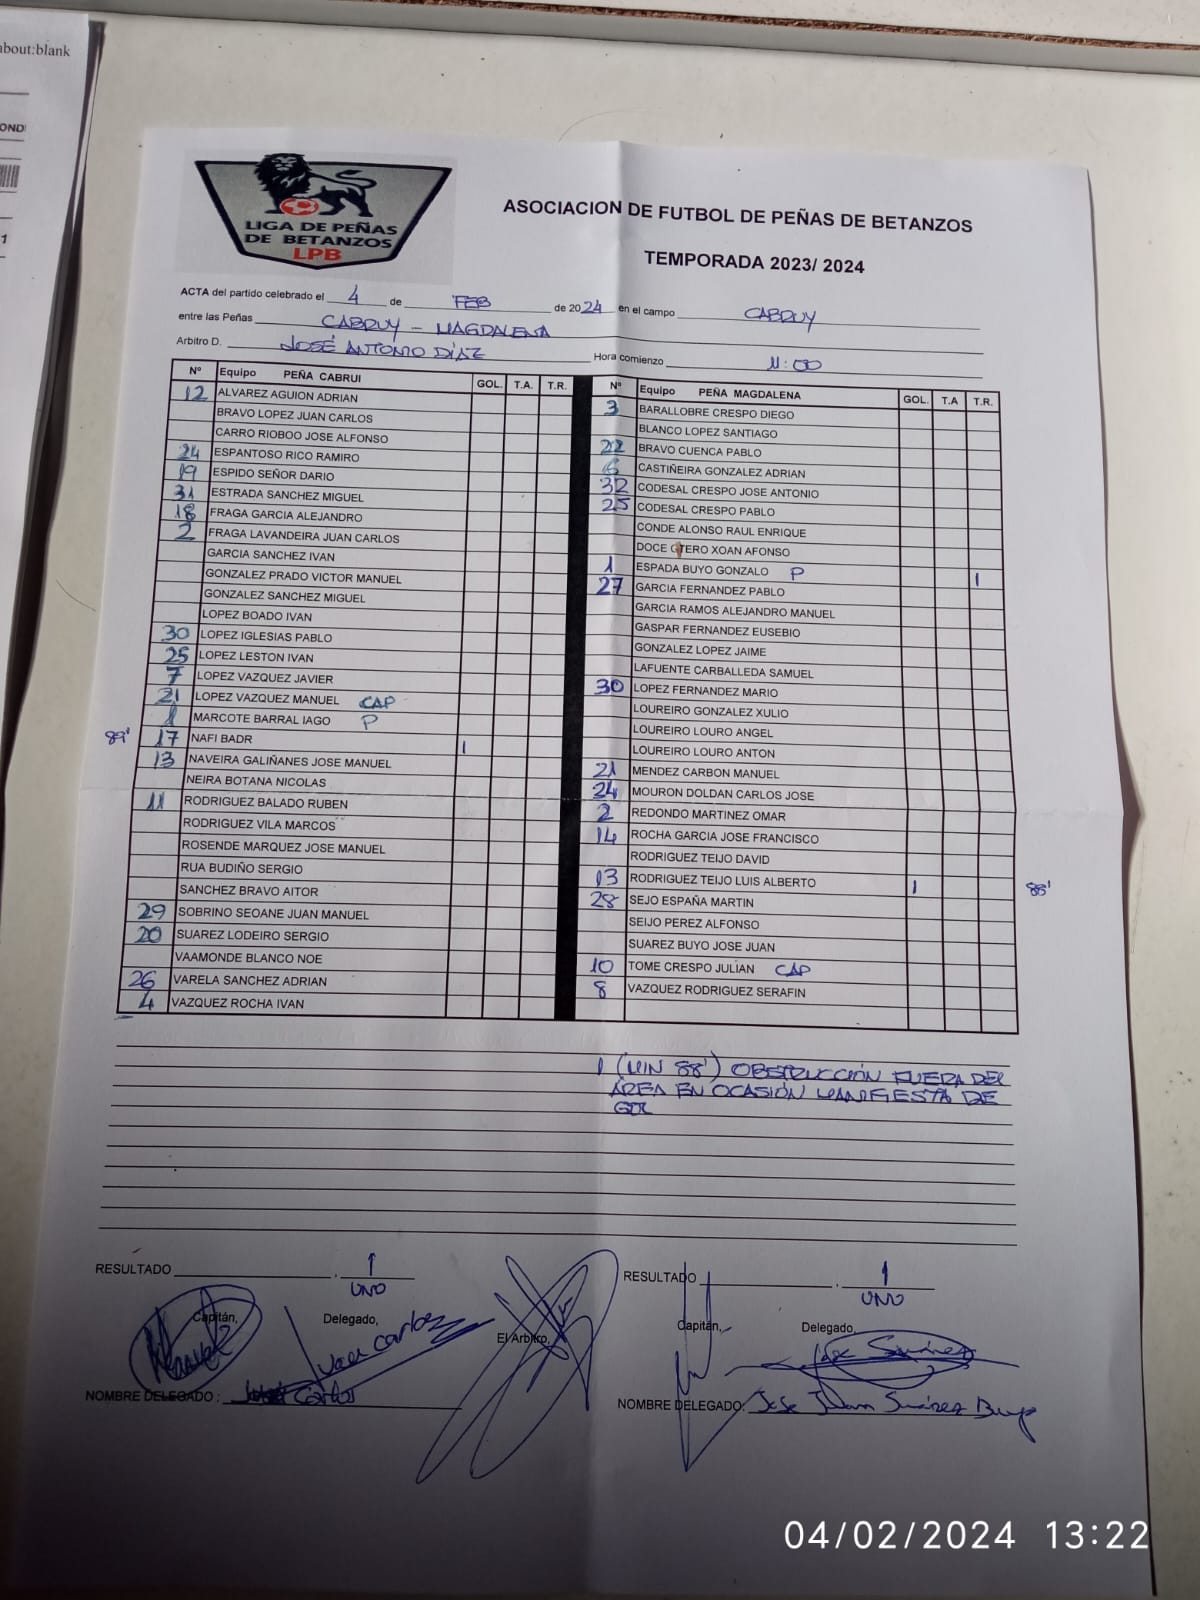 about:blank
OND
1
LIGA DE PEÑAS
DE BETANZOS
LPB
ASOCIACION DE FUTBOL DE PEÑAS DE BETANZOS
TEMPORADA 2023/ 2024
ACTA del partido celebrado el 4 de FEB de 2024 en el campo CABRUY
entre las Peñas CABRUY - MAGDALENA
Arbitro D. JOSÉ ANTONIO DÍAZ Hora comienzo 11:00
Nº Equipo PEÑA CABRUI GOL. T.A. T.R.
12 ALVAREZ AGUION ADRIAN
BRAVO LOPEZ JUAN CARLOS
CARRO RIOBOO JOSE ALFONSO
24 ESPANTOSO RICO RAMIRO
19 ESPIDO SEÑOR DARIO
31 ESTRADA SANCHEZ MIGUEL
18 FRAGA GARCIA ALEJANDRO
2 FRAGA LAVANDEIRA JUAN CARLOS
GARCIA SANCHEZ IVAN
GONZALEZ PRADO VICTOR MANUEL
GONZALEZ SANCHEZ MIGUEL
LOPEZ BOADO IVAN
30 LOPEZ IGLESIAS PABLO
25 LOPEZ LESTON IVAN
7 LOPEZ VAZQUEZ JAVIER
21 LOPEZ VAZQUEZ MANUEL CAP
MARCOTE BARRAL IAGO P
89' 17 NAFI BADR 1
13 NAVEIRA GALIÑANES JOSE MANUEL
NEIRA BOTANA NICOLAS
11 RODRIGUEZ BALADO RUBEN
RODRIGUEZ VILA MARCOS
ROSENDE MARQUEZ JOSE MANUEL
RUA BUDIÑO SERGIO
SANCHEZ BRAVO AITOR
29 SOBRINO SEOANE JUAN MANUEL
20 SUAREZ LODEIRO SERGIO
VAAMONDE BLANCO NOE
26 VARELA SANCHEZ ADRIAN
4 VAZQUEZ ROCHA IVAN
Nº Equipo PEÑA MAGDALENA GOL. T.A T.R.
3 BARALLOBRE CRESPO DIEGO
BLANCO LOPEZ SANTIAGO
22 BRAVO CUENCA PABLO
6 CASTIÑEIRA GONZALEZ ADRIAN
32 CODESAL CRESPO JOSE ANTONIO
25 CODESAL CRESPO PABLO
CONDE ALONSO RAUL ENRIQUE
DOCE OTERO XOAN AFONSO
1 ESPADA BUYO GONZALO P 1
27 GARCIA FERNANDEZ PABLO
GARCIA RAMOS ALEJANDRO MANUEL
GASPAR FERNANDEZ EUSEBIO
GONZALEZ LOPEZ JAIME
LAFUENTE CARBALLEDA SAMUEL
30 LOPEZ FERNANDEZ MARIO
LOUREIRO GONZALEZ XULIO
LOUREIRO LOURO ANGEL
LOUREIRO LOURO ANTON
21 MENDEZ CARBON MANUEL
24 MOURON DOLDAN CARLOS JOSE
2 REDONDO MARTINEZ OMAR
14 ROCHA GARCIA JOSE FRANCISCO
RODRIGUEZ TEIJO DAVID
13 RODRIGUEZ TEIJO LUIS ALBERTO 1 88'
28 SEJO ESPAÑA MARTIN
SEIJO PEREZ ALFONSO
SUAREZ BUYO JOSE JUAN
10 TOME CRESPO JULIAN CAP
8 VAZQUEZ RODRIGUEZ SERAFIN
1 (MIN 88') OBSTRUCCIÓN FUERA DEL
ÁREA EN OCASIÓN MANIFIESTA DE
GOL
RESULTADO . 1
UNO
RESULTADO . 1
UNO
Capitán, Delegado, El Arbitro, Capitán, Delegado,
Juan Carlos
José Suárez
NOMBRE DELEGADO : Carlos
NOMBRE DELEGADO: José Juan Suárez Buyo
04/02/2024 13:22